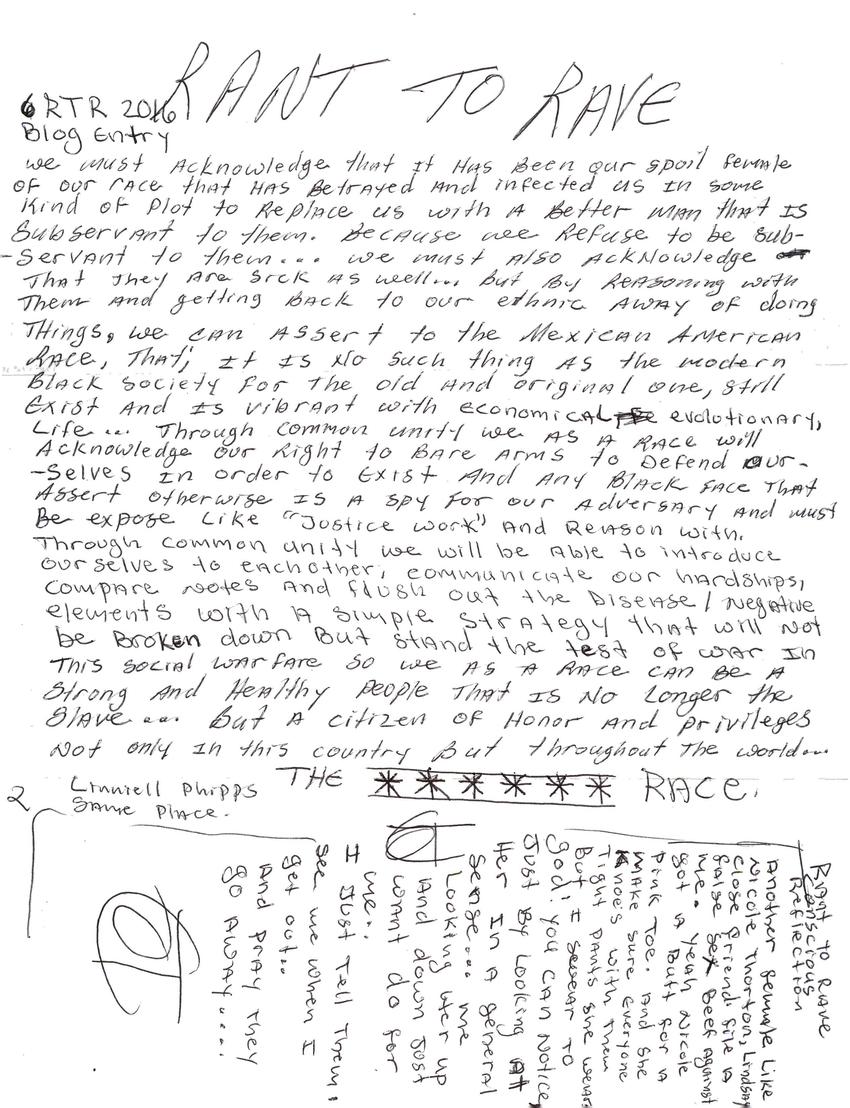 RANT TO RAVE
6 RTR 2016
Blog Entry
we must Acknowledge that it HAS Been our spoil female
OF our race that HAS Betrayed And infected us In some
Kind of Plot to Replace us with A Better man that IS
Subservant to them. Because we Refuse to be Sub-
-Servant to them... we must Also Acknowledge
That they Are sick As well... But By Reasoning with
Them And getting Back to our ethnic AWAY of doing
THings, we can Assert to the Mexican American
Race, That; it IS No Such thing As the modern
Black Society for the old And original one, still
Exist And IS vibrant with economical evolutionary,
Life... Through common unity we AS A RACE will
Acknowledge our Right to Bare Arms to Defend our-
-Selves In order to Exist And Any Black face That
Assert otherwise IS A Spy for our Adversary And must
Be expose Like "Justice work" And Reason with.
Through common unity we will be Able to introduce
ourselves to eachother, communicate our hardships,
compare notes And flush out the Disease / Negative
elements with A simple strategy that will Not
be Broken down But stand the test of war In
This social warfare so we AS A RACE can Be A
Strong And Healthy People That IS No Longer the
Slave... But A citizen of Honor And privileges
Not only In this country But throughout The world...
THE ****** RACE.
2 Linniell Phipps
Same Place.
Rant to Rave
Conscious
Reflection
Another female Like
Nicole Thorton, Lindsay
close friend file A
false Sex Beef Against
me. Yeah Nicole
got A Butt for A
Pink Toe. And She
make sure everyone
knoe's with them
Tight pants she wears
But I swear to
God! you can Notice
Just By Looking At
Her In A general
Sense... me
Looking Her up
And down Just
want do for
me..
I Just Tell Them:
See me when I
get out..
And pray they
go Away....